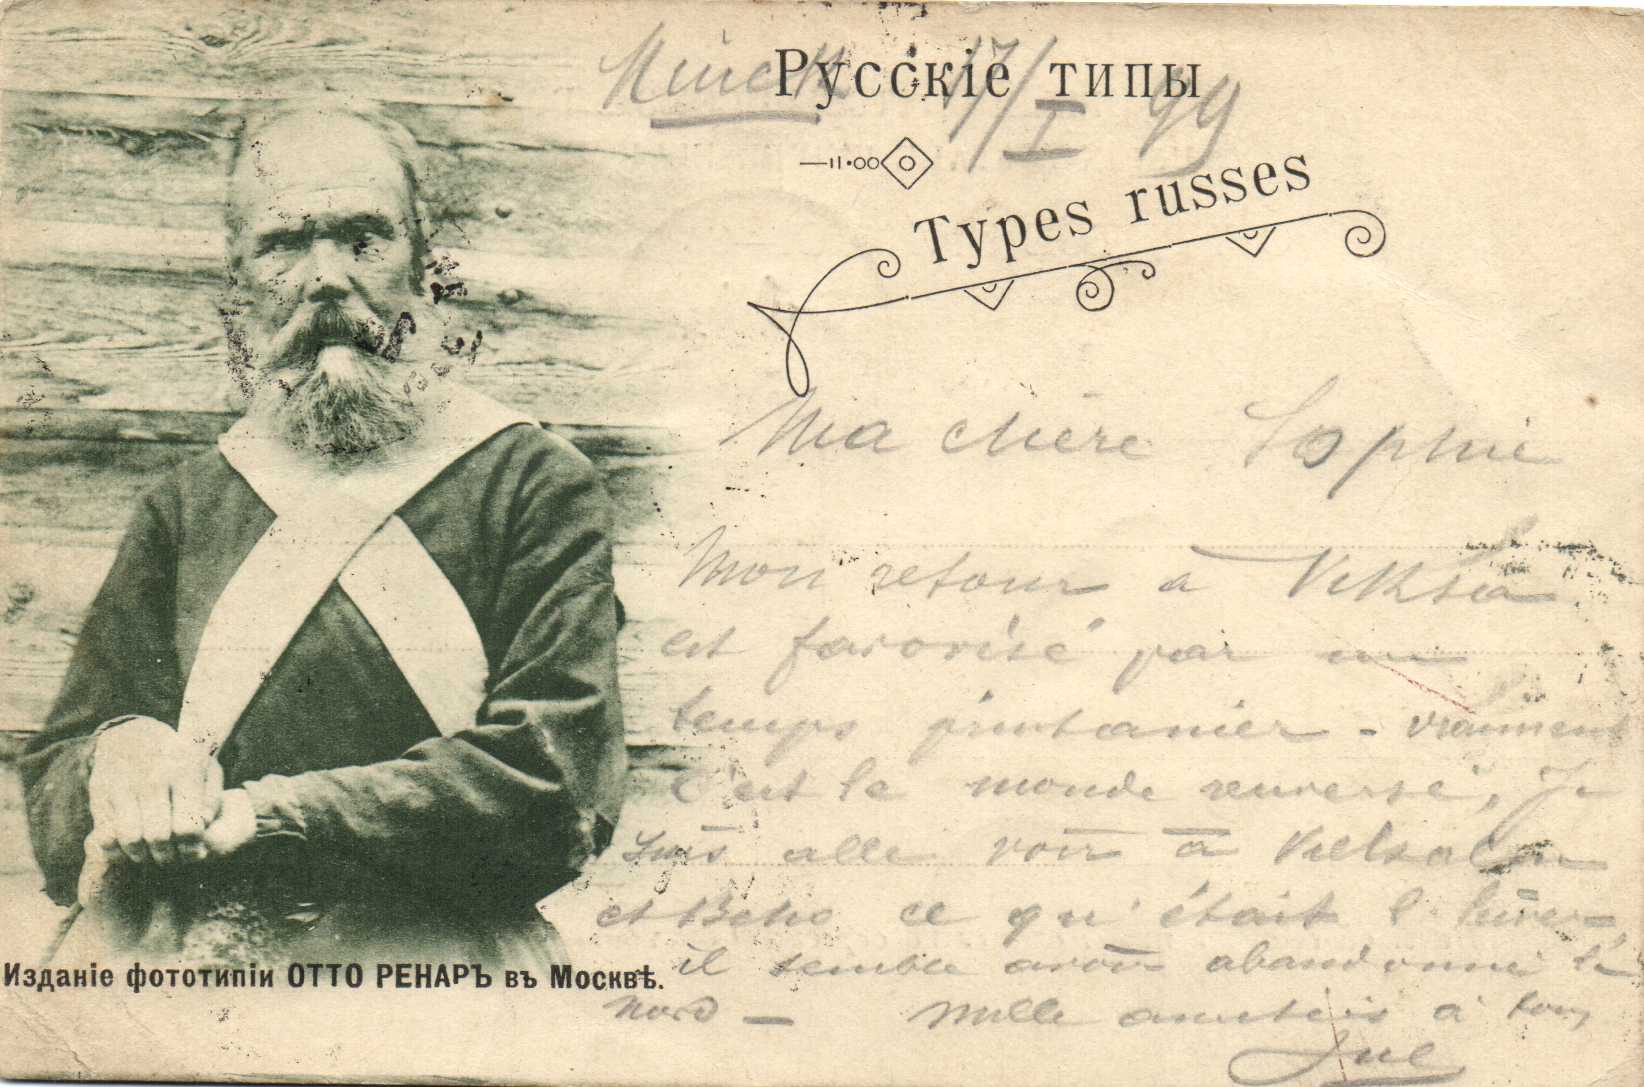 Minck 17/I 99
Русскіе типы
Types russes
Ma chère Sophie
Mon retour à
est favorisé par un
temps printanier - vraiment
c'est le monde renversé, Je
suis allé voir à
et ce qu'était l'hiver -
il semble avoir abandonné le
nord — Mille amitiés à tous
Изданіе фототипіи ОТТО РЕНАРЪ въ Москвѣ.